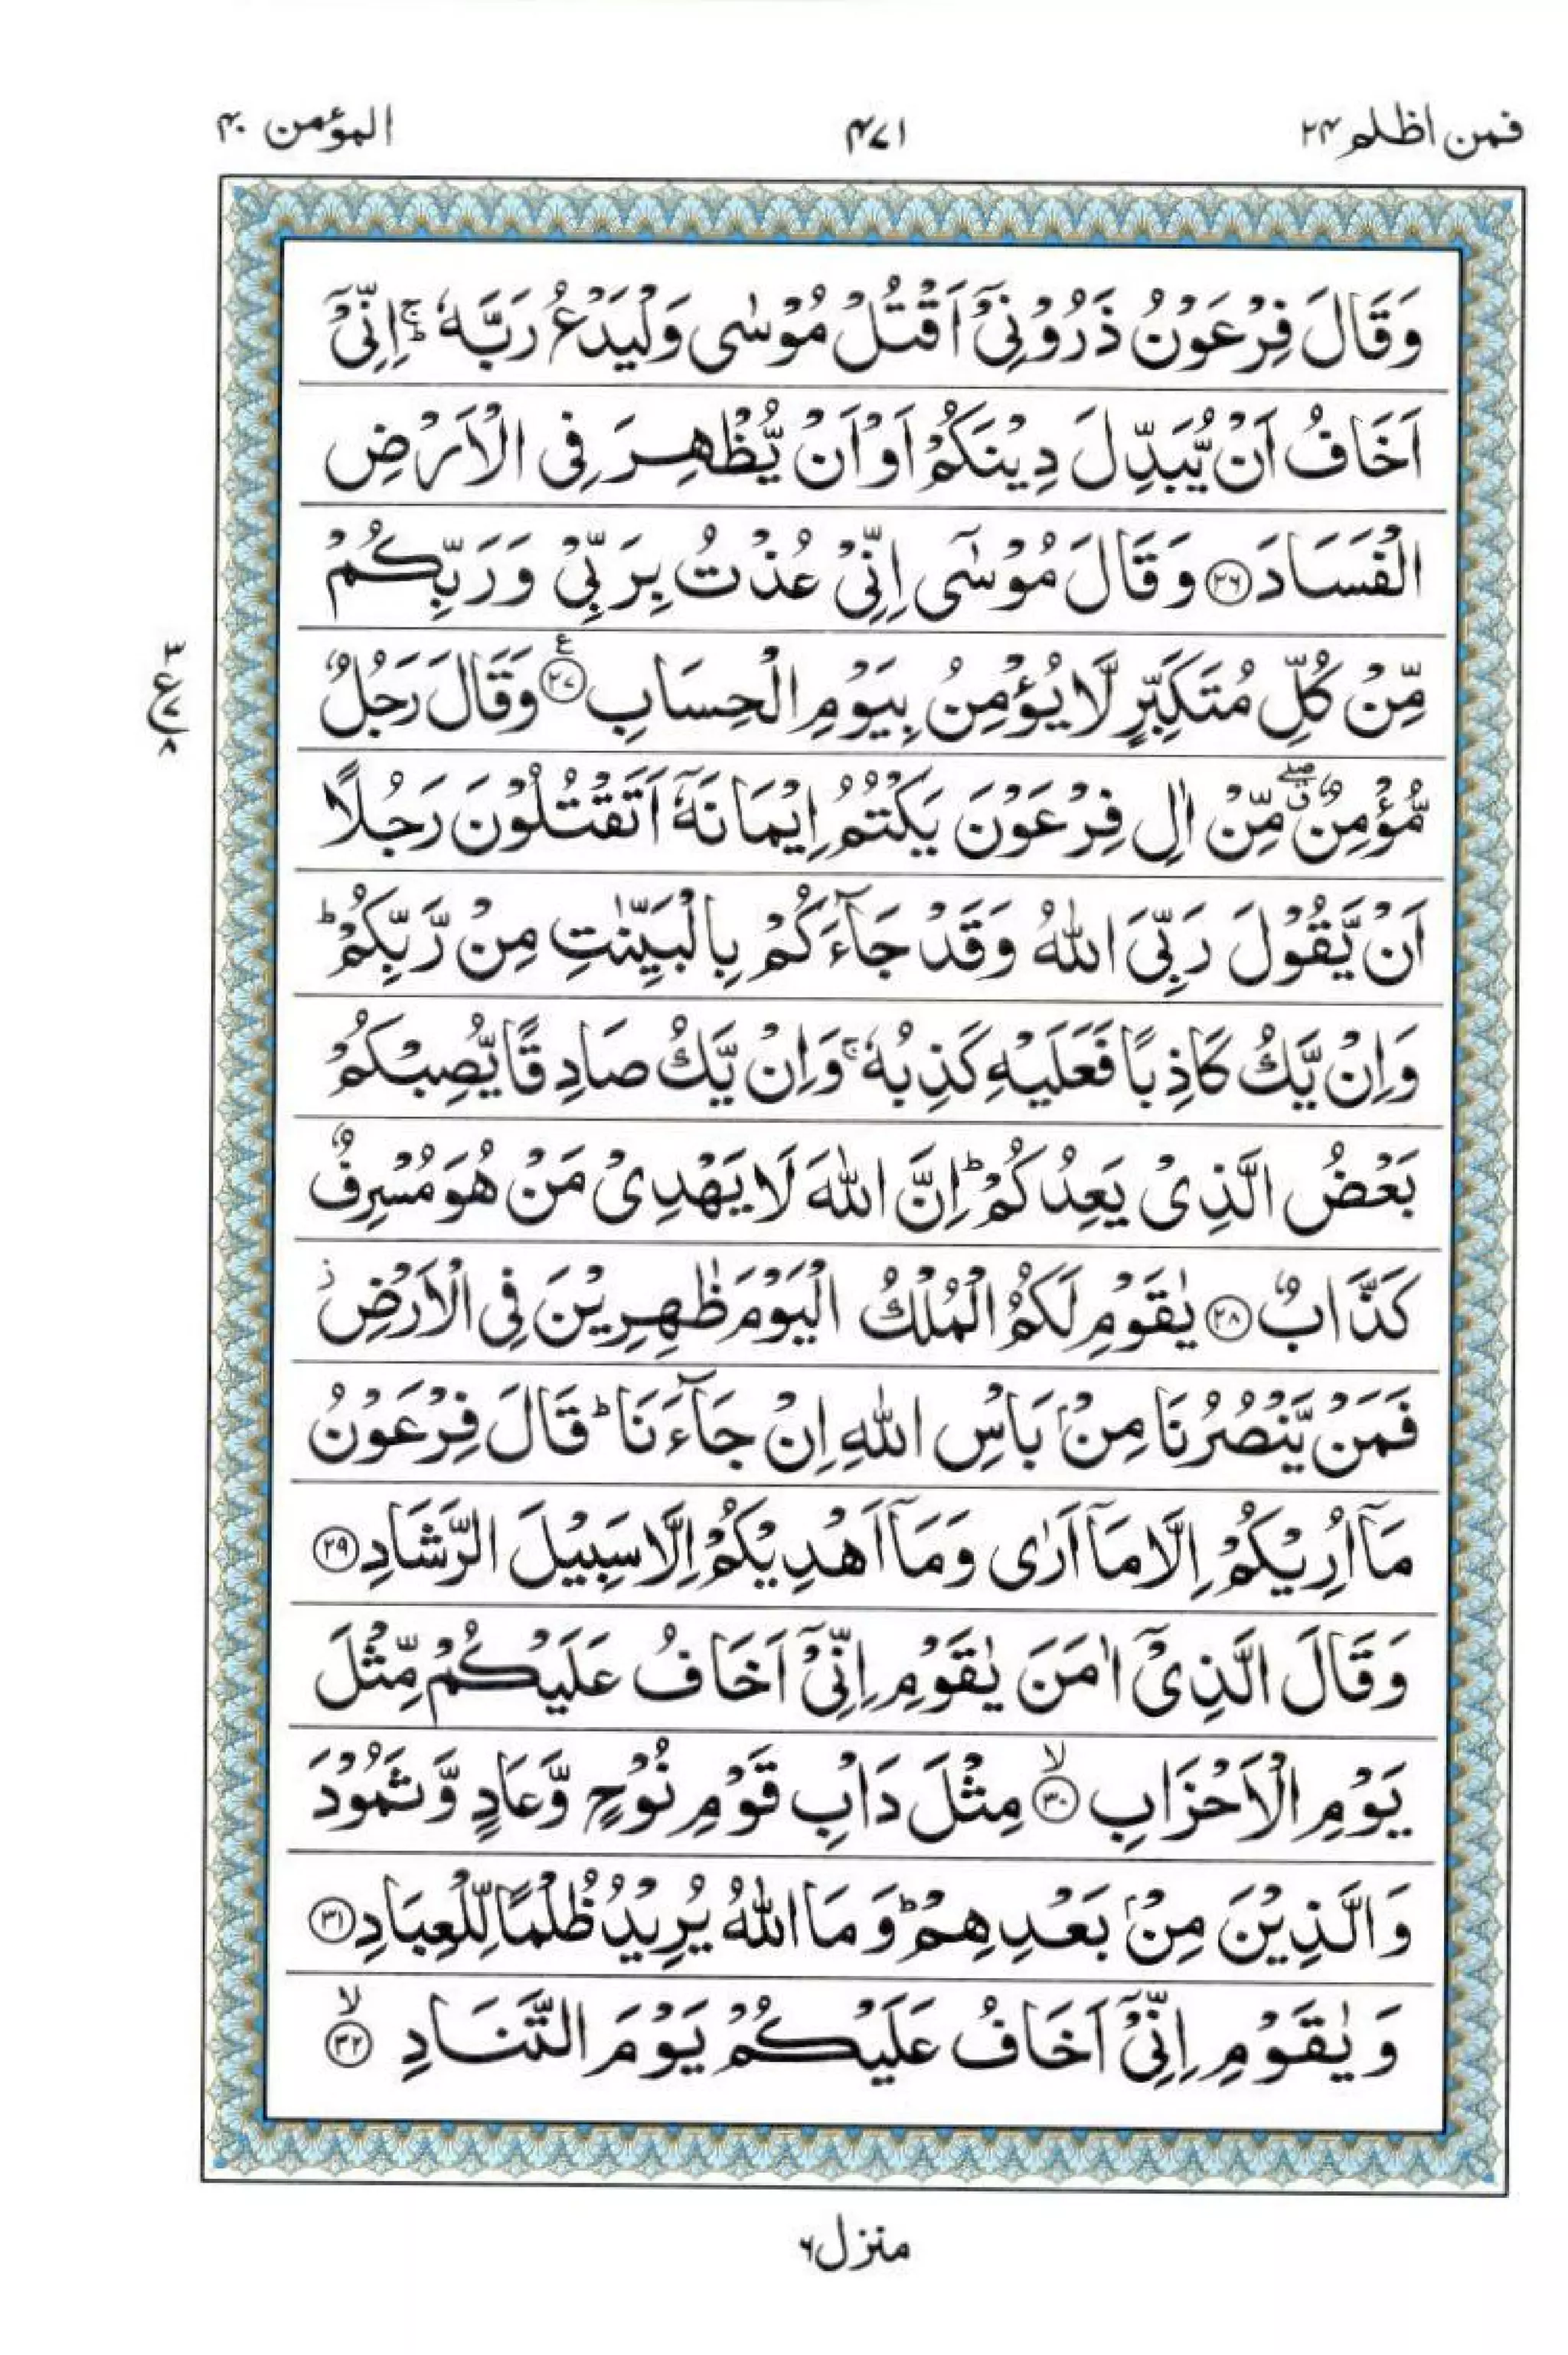 فمن اظلم ۲۴
۴۷۱
المؤمن ۴۰
وَقَالَ فِرْعَوْنُ ذَرُوْنِیْۤ اَقْتُلْ مُوْسٰى وَلْیَدْعُ رَبَّهٗ ۚؕ اِنِّیْۤ
اَخَافُ اَنْ یُّبَدِّلَ دِیْنَكُمْ اَوْ اَنْ یُّظْهِرَ فِی الْاَرْضِ
الْفَسَادَ ﴿۲۶﴾ وَقَالَ مُوْسٰۤى اِنِّیْ عُذْتُ بِرَبِّیْ وَرَبِّكُمْ
مِّنْ كُلِّ مُتَكَبِّرٍ لَّا یُؤْمِنُ بِیَوْمِ الْحِسَابِ ﴿۲۷﴾ ع وَقَالَ رَجُلٌ
۳
ع ۷
۸
مُّؤْمِنٌ ۖۗ مِّنْ اٰلِ فِرْعَوْنَ یَكْتُمُ اِیْمَانَهٗۤ اَتَقْتُلُوْنَ رَجُلًا
اَنْ یَّقُوْلَ رَبِّیَ اللّٰهُ وَقَدْ جَآءَكُمْ بِالْبَیِّنٰتِ مِنْ رَّبِّكُمْ ؕ
وَاِنْ یَّكُ كَاذِبًا فَعَلَیْهِ كَذِبُهٗ ۚ وَاِنْ یَّكُ صَادِقًا یُّصِبْكُمْ
بَعْضُ الَّذِیْ یَعِدُكُمْ ؕ اِنَّ اللّٰهَ لَا یَهْدِیْ مَنْ هُوَ مُسْرِفٌ
كَذَّابٌ ﴿۲۸﴾ یٰقَوْمِ لَكُمُ الْمُلْكُ الْیَوْمَ ظٰهِرِیْنَ فِی الْاَرْضِ ز
فَمَنْ یَّنْصُرُنَا مِنْۢ بَاْسِ اللّٰهِ اِنْ جَآءَنَا ؕ قَالَ فِرْعَوْنُ
مَاۤ اُرِیْكُمْ اِلَّا مَاۤ اَرٰى وَمَاۤ اَهْدِیْكُمْ اِلَّا سَبِیْلَ الرَّشَادِ ﴿۲۹﴾
وَقَالَ الَّذِیْۤ اٰمَنَ یٰقَوْمِ اِنِّیْۤ اَخَافُ عَلَیْكُمْ مِّثْلَ
یَوْمِ الْاَحْزَابِ ﴿۳۰﴾ ۙ مِثْلَ دَاْبِ قَوْمِ نُوْحٍ وَّعَادٍ وَّثَمُوْدَ
وَالَّذِیْنَ مِنْۢ بَعْدِهِمْ ؕ وَمَا اللّٰهُ یُرِیْدُ ظُلْمًا لِّلْعِبَادِ ﴿۳۱﴾
وَیٰقَوْمِ اِنِّیْۤ اَخَافُ عَلَیْكُمْ یَوْمَ التَّنَادِ ﴿۳۲﴾ ۙ
منزل ۶